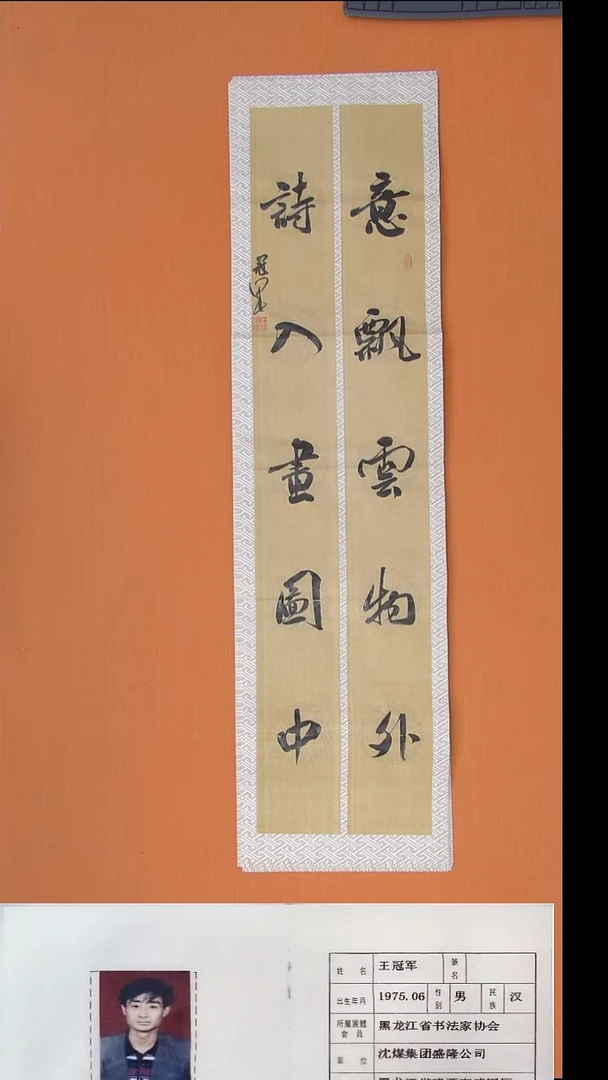 意飘雲物外
詩入畫圖中
冠军
姓名 王冠军 筆名
出生年月 1975.06 性别 男 民族 汉
所屬團體會員 黑龙江省书法家协会
單位 沈煤集团盛隆公司